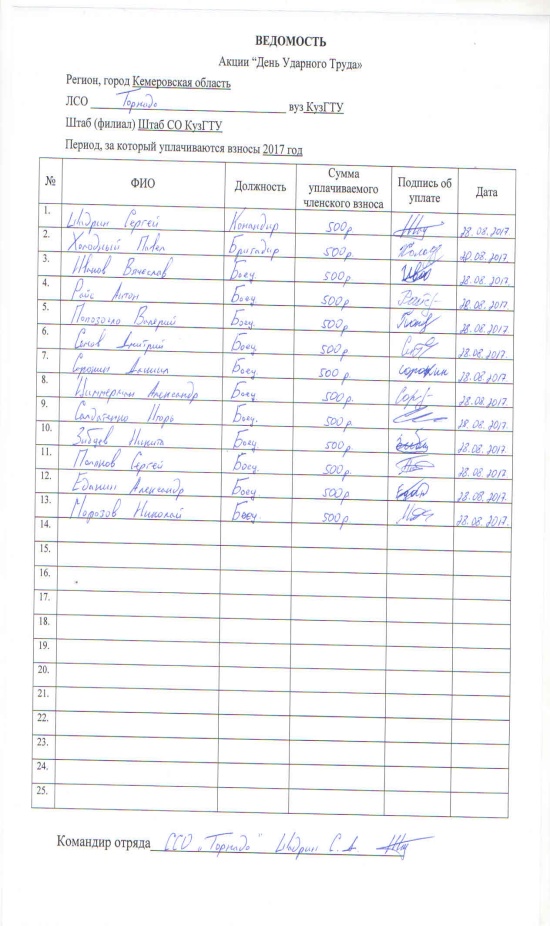 ВЕДОМОСТЬ
Акции “День Ударного Труда»
Регион, город Кемеровская область
ЛСО Торнадо вуз КузГТУ
Штаб (филиал) Штаб СО КузГТУ
Период, за который уплачиваются взносы 2017 год
№ ФИО Должность Сумма уплачиваемого членского взноса Подпись об уплате Дата
1. Шадрин Сергей Командир 500р. 28.08.2017.
2. Холодный Павел Бригадир 500р. 28.08.2017.
3. Вячеслав Боец 500р. 28.08.2017.
4. Райс Антон Боец 500р. 28.08.2017.
5. Валерий Боец. 500р. 28.08.2017.
6. Дмитрий Боец 500р. 28.08.2017.
7. Сорокин Даниил Боец. 500р. сорокин 28.08.2017.
8. Циммерман Александр Боец 500р. 28.08.2017.
9. Игорь Боец. 500р. 28.08.2017.
10. Никита Боец 500р. 28.08.2017.
11. Сергей Боец. 500р. 28.08.2017.
12. Александр Боец 500р. 28.08.2017.
13. Морозов Николай Боец 500р. 28.08.2017.
14.
15.
16.
17.
18.
19.
20.
21.
22.
23.
24.
25.
Командир отряда ССО „Торнадо“ Шадрин С.А